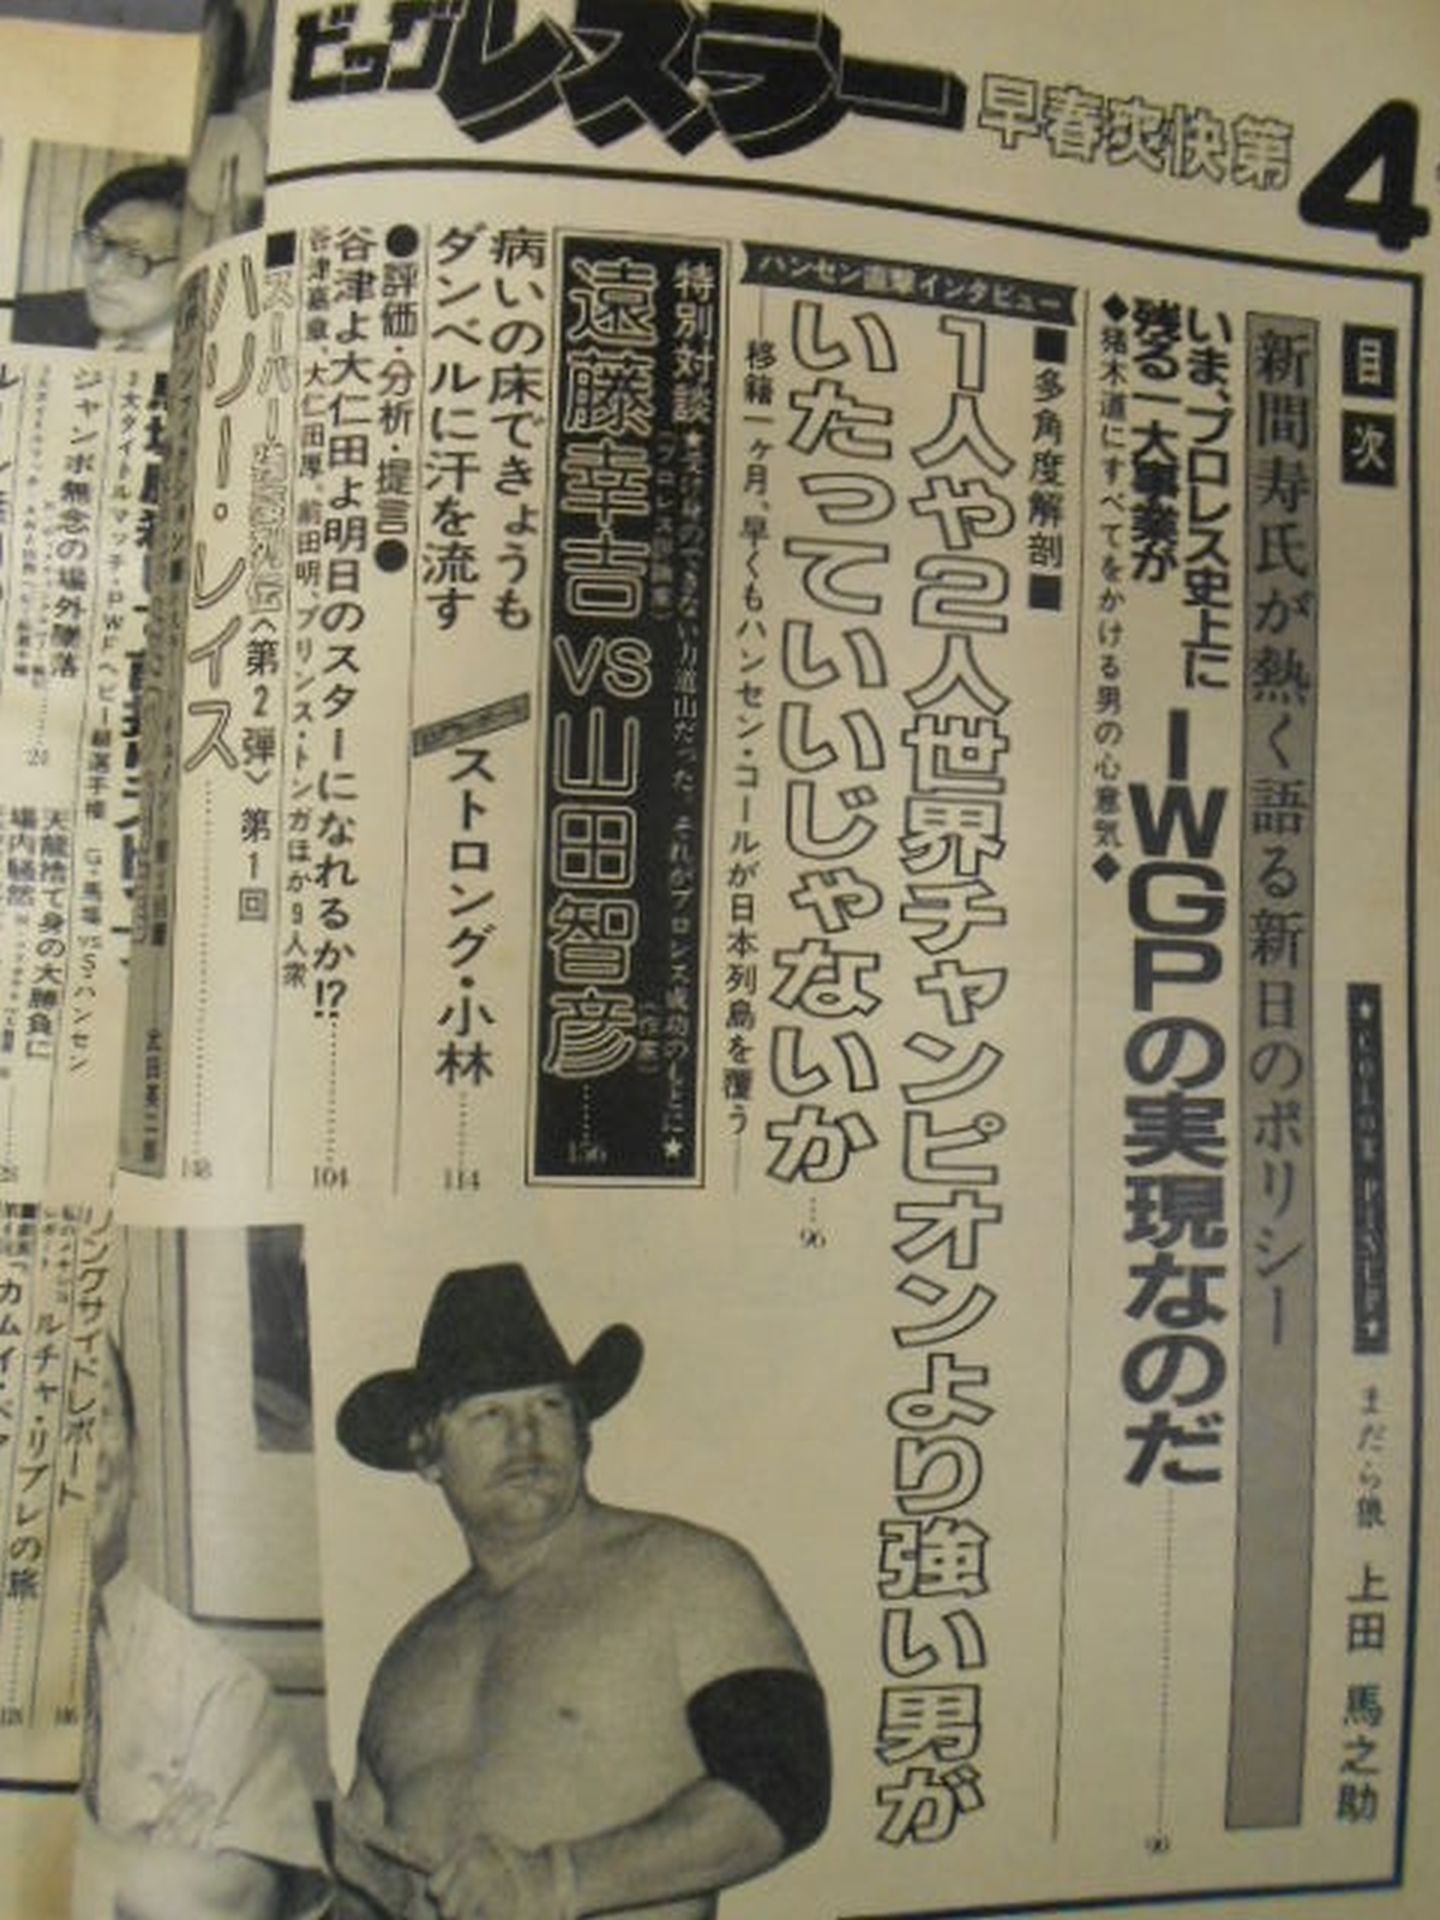 ビッグレスラー
早春爽快第4
目次
まだら狼 上田馬之助
新間寿氏が熱く語る新日のポリシー
いま、プロレス史上に
残る一大事業が
IWGPの実現なのだ
90
◆猪木道にすべてをかける男の心意気◆
■多角度解剖■
ハンセン直撃インタビュー
1人や2人世界チャンピオンより強い男が
いたっていいじゃないか
96
移籍一ヶ月、早くもハンセン・コールが日本列島を覆う
特別対談
遠藤幸吉VS山田智彦
156
病いの床できょうも
ダンベルに汗を流す
ストロング・小林
114
●評価・分析・提言●
谷津よ大仁田よ明日のスターになれるか!?
104
谷津嘉章、大仁田厚、前田明、プリンス・トンガほか9人衆
■スーパー
〈第2弾〉第1回
ハリー・レイス
148
ジャンボ無念の場外墜落
24
G・馬場VSハンセン
天龍捨て身の大勝負に
場内騒然
リングサイドレポート
ルチャ・リブレの旅